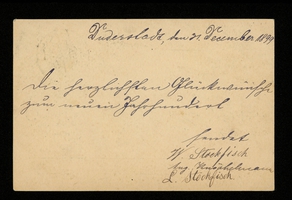 Duderstadt, den 31. Dezember 1899
Die herzlichsten Glückwünsche
zum neuen Jahrhundert
sendet
W. Stockfisch
Aug.
L. Stockfisch.